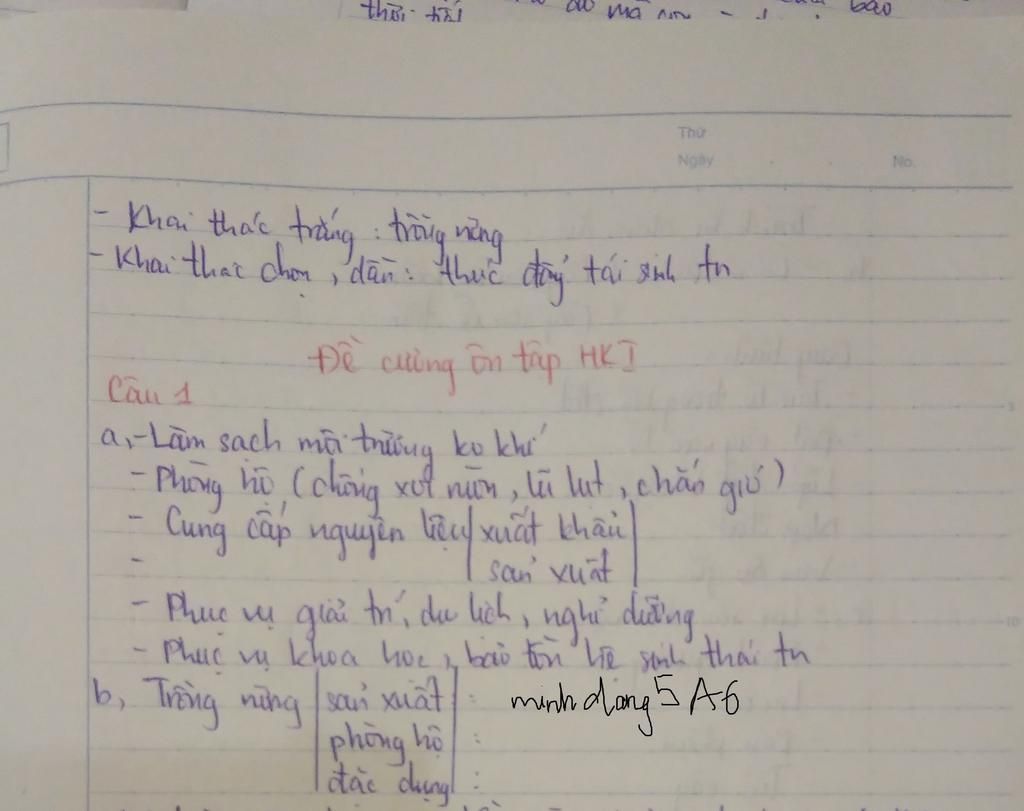 thời tiết bão
Thứ
Ngày No.
- Khai thác trắng : trồng rừng
- Khai thác chọn, dần : thúc đẩy tái sinh tn
Đề cương ôn tập HKI
Câu 1
a, - Làm sạch môi trường ko khí
- Phòng hộ (chống xói mòn, lũ lụt, chắn gió)
- Cung cấp nguyên liệu xuất khẩu
- sản xuất
- Phục vụ giải trí, du lịch, nghỉ dưỡng
- Phục vụ khoa học, bảo tồn hệ sinh thái tn
b, Trồng rừng sản xuất : minh dang 5 A6
phòng hộ :
đặc dụng :